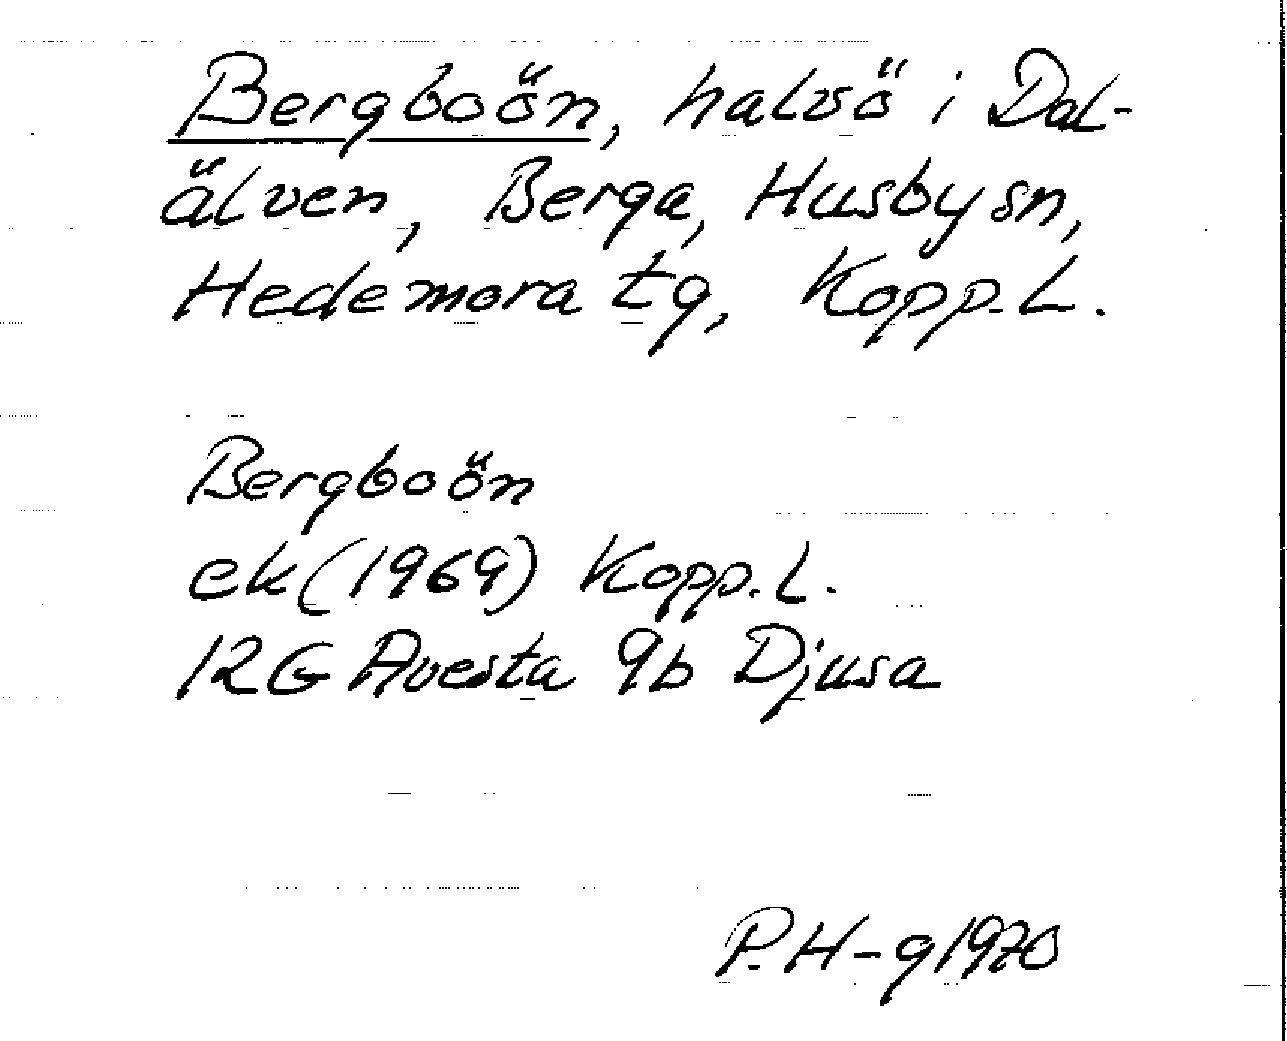 Bergboön, halvö i Dal-
älven, Berga, Husby sn,
Hedemora tg, Kopp. L.
Bergboön
ek (1969) Kopp. L.
12G Avesta 9b Djusa
P. H-g 1970